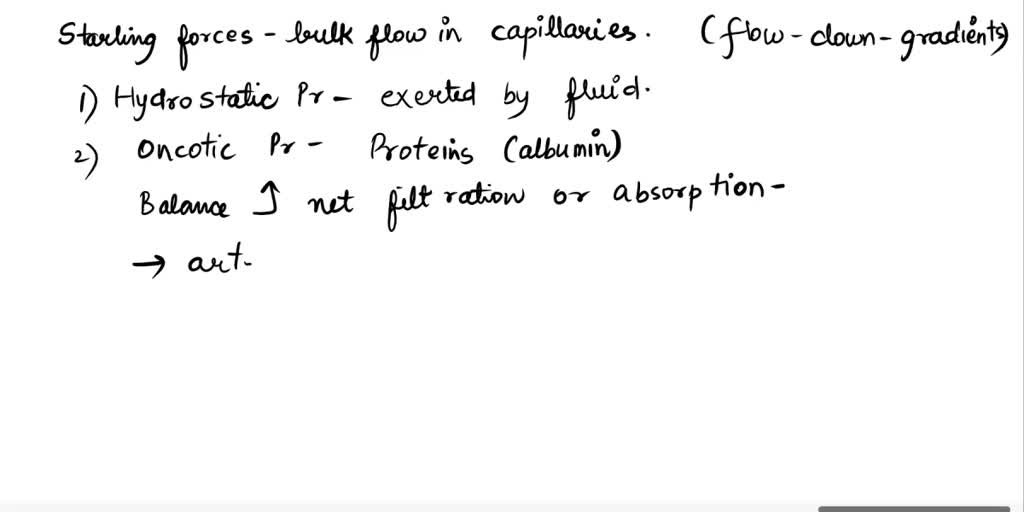 Starling forces - bulk flow in capillaries. (flow-down-gradients)
1) Hydrostatic Pr - exerted by fluid.
2) Oncotic Pr - Proteins (albumin)
Balance ↑ net filtration or absorption -
→ art.